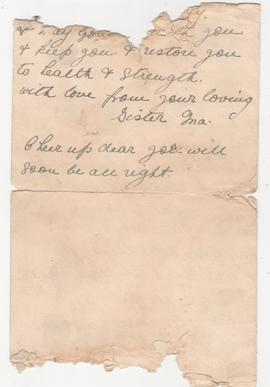 & May God you
& keep you & restore you
to health & strength.
with love from your loving
Sister Ina.
Cheer up dear you will
soon be all right.